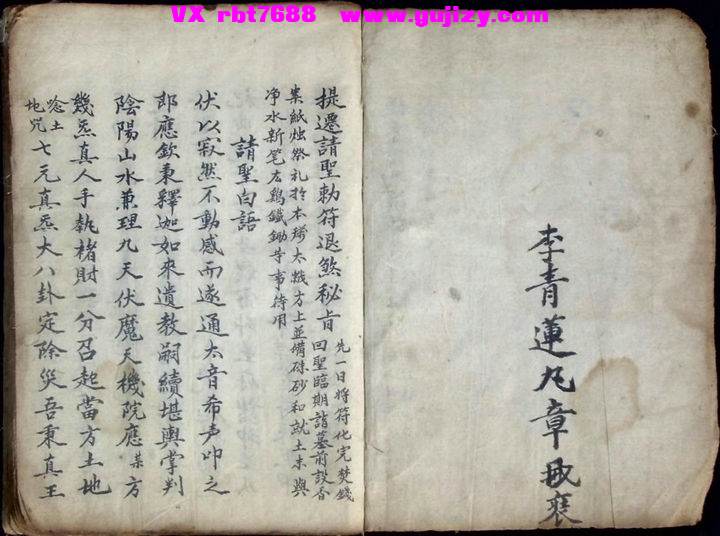 VX rbt7688 www.gujizy.com
李青蓮九章
提遷請聖勅符退煞秘旨
先一日將符化完焚錢
回聖臨期詣墓前設香
案紙燭祭礼於本塋太歲方上並備硃砂和就土末與
净水新笔右鷄鐵鋤等事待用
請聖白語
伏以寂然不動感而遂通太音希声叩之
即應欽秉釋迦如來遺教嗣續堪輿掌判
陰陽山水兼理九天伏魔天機院應某方
幾炁真人手執楮財一分召起當方土地
唸土地咒
七元真炁大八卦定除災吾秉真王